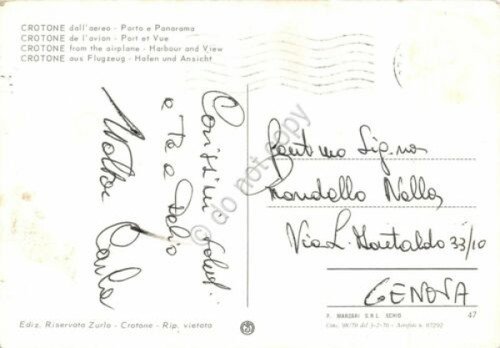 CROTONE dall'aereo - Porto e Panorama
CROTONE de l'avion - Port et Vue
CROTONE from the airplane - Harbour and View
CROTONE aus Flugzeug - Hafen und Ansicht
Carissimi saluti
a te e Delio
Walter Carla
© do not copy
Gent.ma Sig.na
Mondello Nella
Via L. Montaldo 33/10
GENOVA
Ediz. Riservata Zurlo - Crotone - Rip. vietata
P. MARZARI S.R.L. SCHIO
47